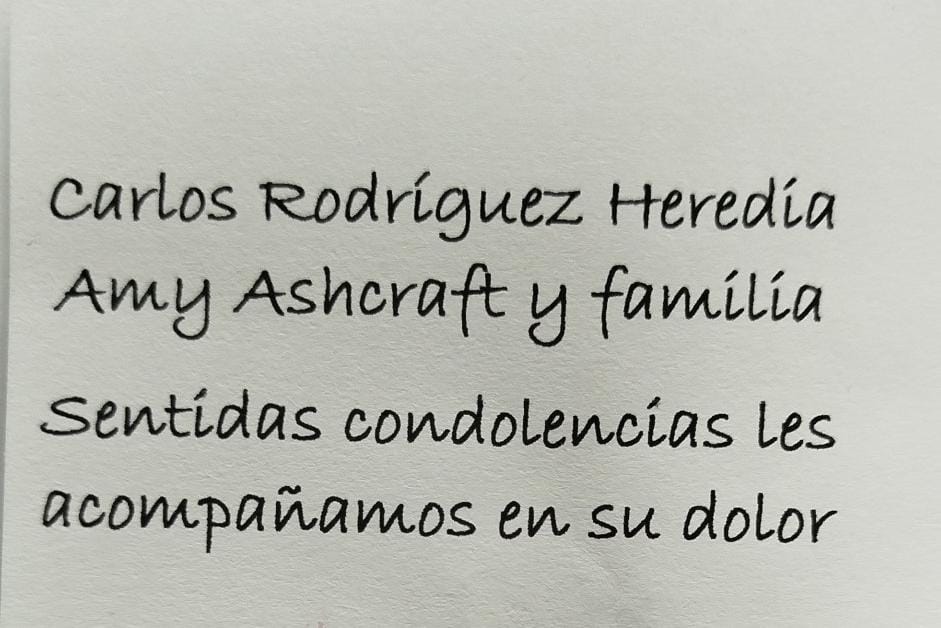 Carlos Rodríguez Heredia
Amy Ashcraft y familia
Sentidas condolencias les
acompañamos en su dolor